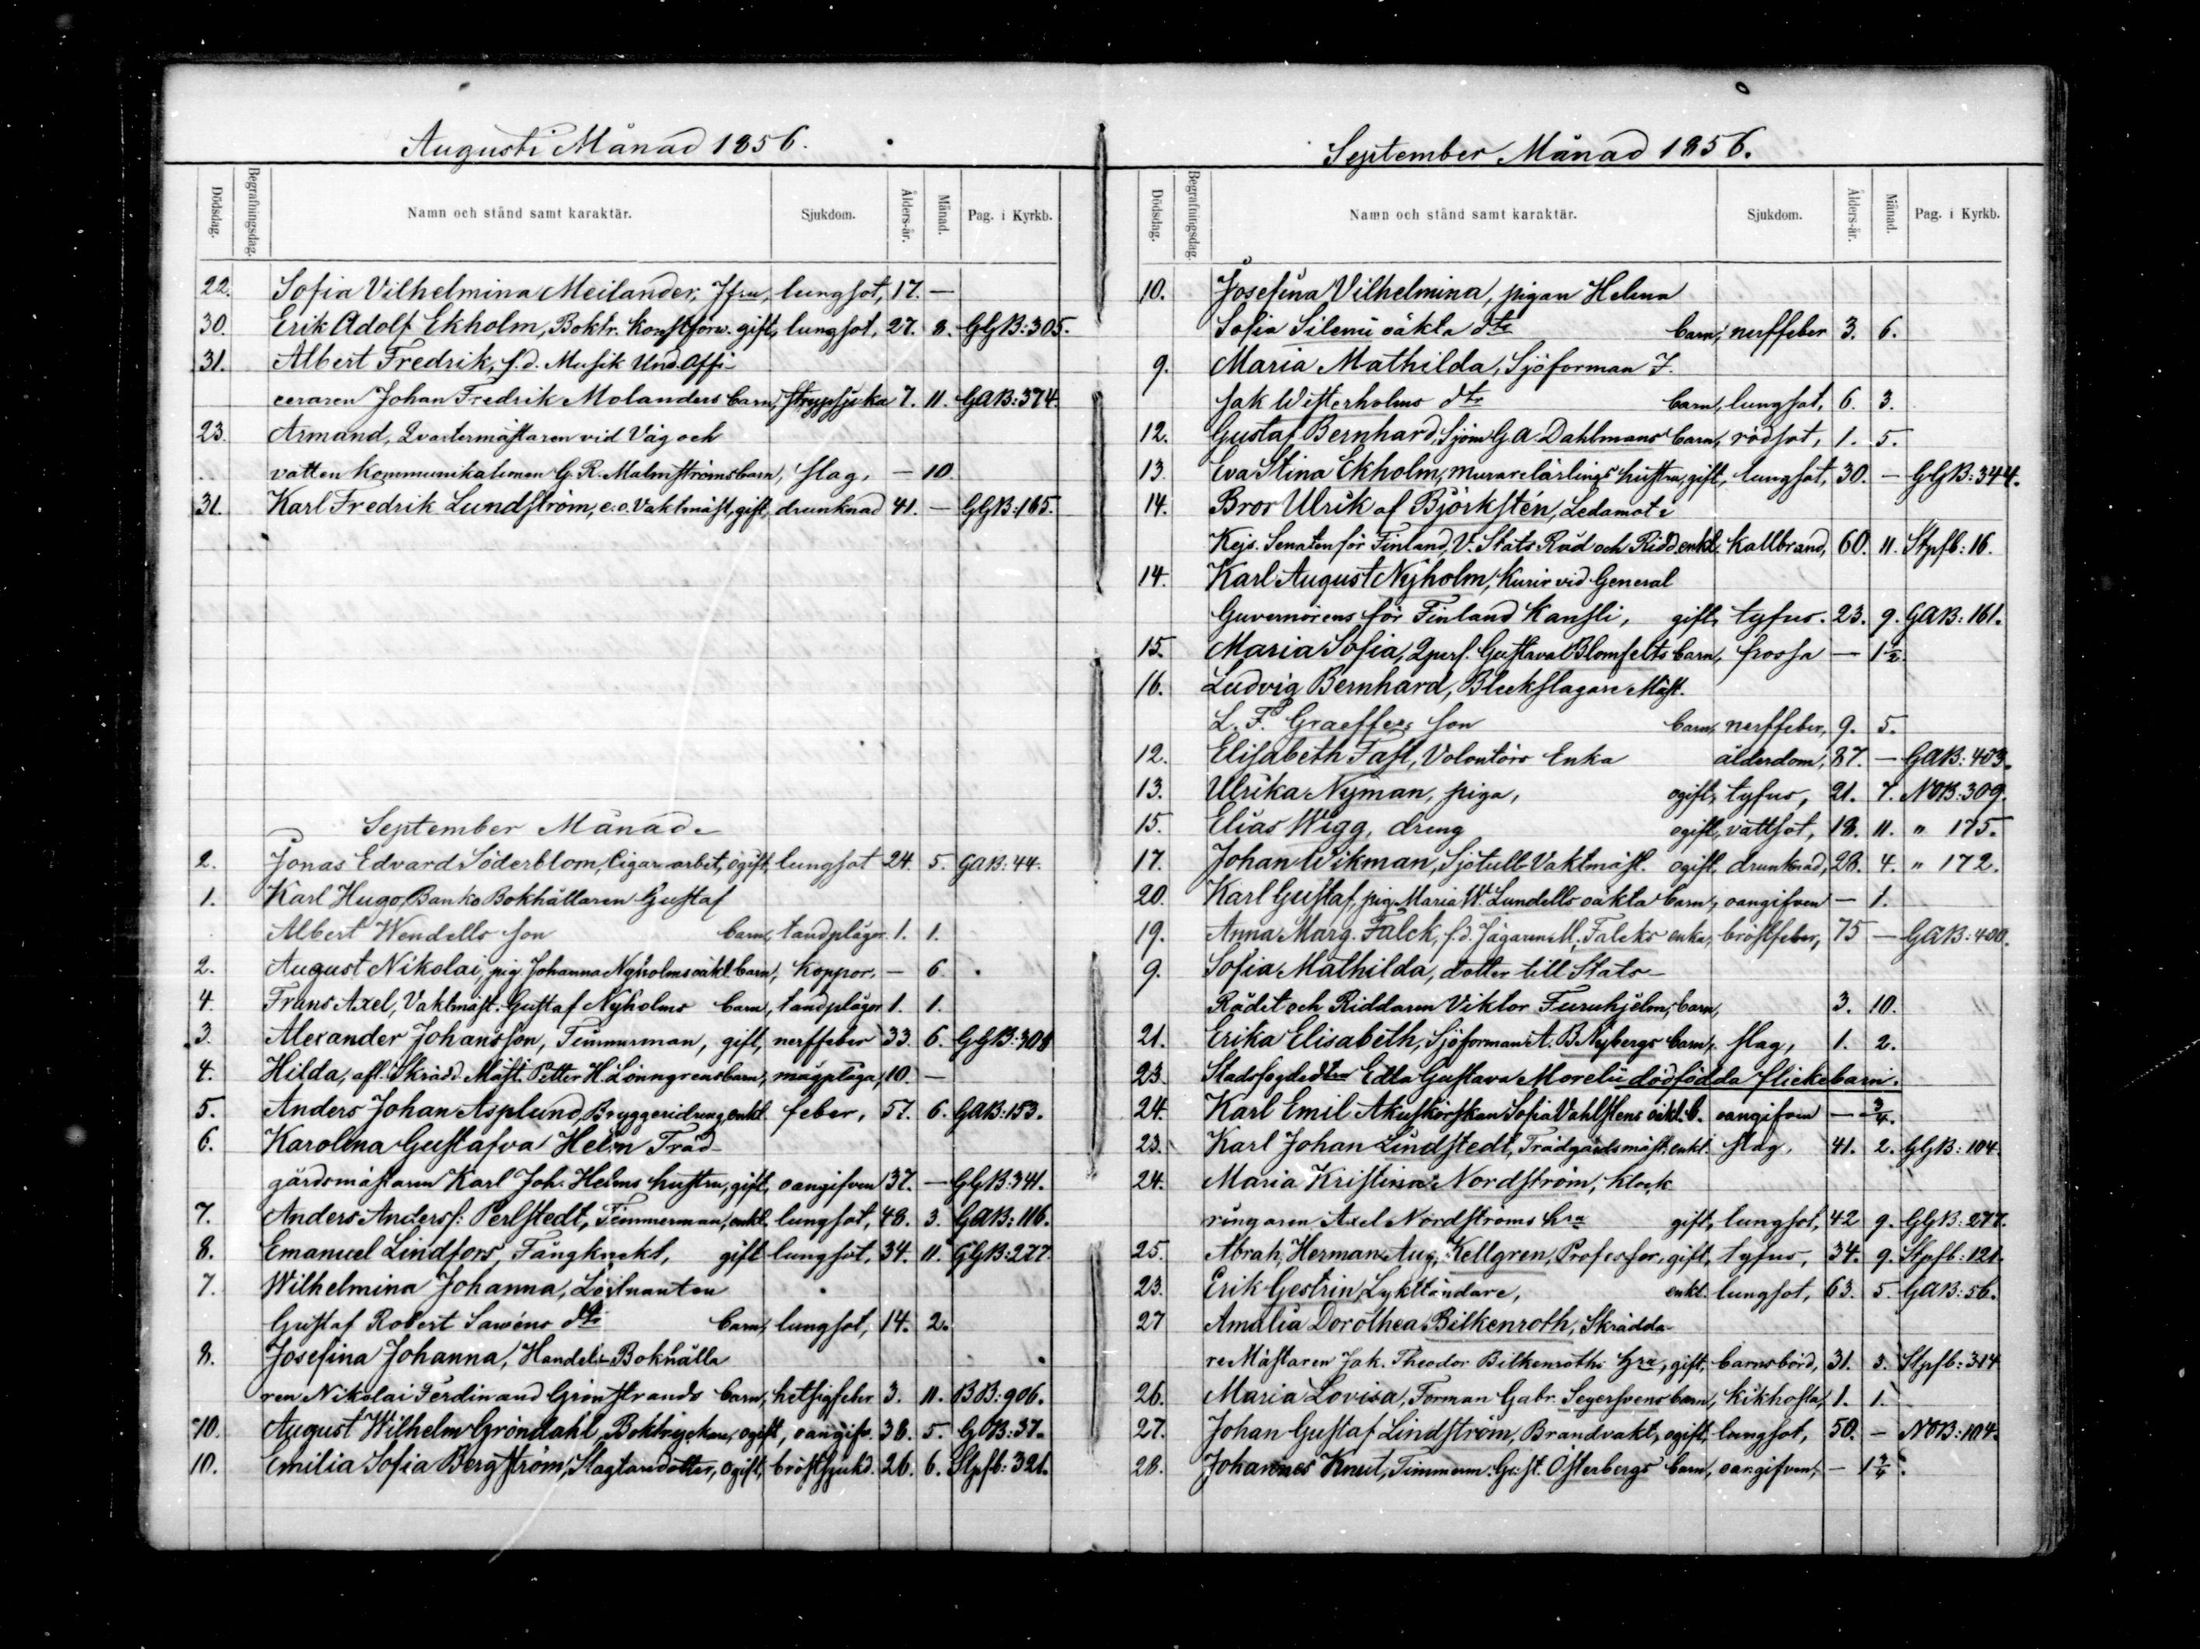 Augusti Månad 1856.
Dödsdag. Begrafningsdag. Namn och stånd samt karaktär. Sjukdom. Ålders-år. Månad. Pag. i Kyrkb.
22. Sofia Vilhelmina Meilander, Jfru, lungsot, 17. —
30. Erik Adolf Ekholm, Boktr. Konstförw. gift, lungsot, 27. 8. GGB: 305.
31. Albert Fredrik, f.d. Musik Und. Offi-
ceraren Johan Fredrik Molanders barn, strypsjuka 7. 11. GAB: 374.
23. Armand, Qvartermästaren vid Väg och
vatten kommunikationen G. R. Malmströms barn, slag, — 10.
31. Karl Fredrik Lundström, e.o. Vaktmäst, gift, drunknad 41. — GGB: 165.
September Månad.
2. Jonas Edvard Söderblom, Cigar arbet, ogift, lungsot 24. 5. GAB: 44.
1. Karl Hugo, Banko Bokhållaren Gustaf
Albert Wendells son barn, tandplågor 1. 1.
2. August Nikolai, pig. Johanna Nyholms oäkt. barn, koppor, — 6.
4. Frans Axel, Vaktmäst. Gustaf Nyholms barn, tandplågor 1. 1.
3. Alexander Johansson, Timmerman, gift, nerffeber 33. 6. GGB: 308
4. Hilda, afl. Skrädd. Mäst. Petter H. Lönngrens barn, magplåga, 10. —
5. Anders Johan Asplund, Bryggeridräng, enkl. feber, 57. 6. GAB: 153.
6. Karolina Gustafva Helm Träd-
gårdsmästaren Karl Joh. Helms hustru, gift, oangifven 37. — GGB: 341.
7. Anders Anderss: Perlstedt, Timmerman, enkl. lungsot, 48. 3. GAB: 116.
8. Emanuel Lindfors, Fångknekt, gift lungsot, 34. 11. GGB: 277.
7. Wilhelmina Johanna, Löjtnanten
Gustaf Robert Sawéns dtr barn, lungsot, 14. 2.
8. Josefina Johanna, Handels-Bokhålla
ren Nikolai Ferdinand Grönstrands barn, hetsigfeber 3. 11. BB: 906.
10. August Wilhelm Gröndahl, Boktryckare, ogift, oangifv. 38. 5. GAB: 37.
10. Emilia Sofia Bergström, Slagtaredotter, ogift, bröstsjukd. 26. 6. Stpfb: 321.
September Månad 1856.
Dödsdag. Begrafningsdag. Namn och stånd samt karaktär. Sjukdom. Ålders-år. Månad. Pag. i Kyrkb.
10. Josefina Vilhelmina, pigan Helena
Sofia Sileni oäkta dtr barn, nerffeber 3. 6.
9. Maria Mathilda, Sjöforman I-
sak Westerholms dtr barn, lungsot, 6. 3.
12. Gustaf Bernhard, Sjöm G A. Dahlmans barn, rödsot, 1. 5.
13. Eva Stina Ekholm, murarelärlings hustru, gift, lungsot, 30. — GGB: 344.
14. Bror Ulrik af Björkstén, Ledamot i
Kejs. Senaten för Finland, V. Stats Råd och Ridd. enkl. kallbrand, 60. 11. Stpfb: 16.
14. Karl August Nyholm, Kurir vid General
Guvernörens för Finland Kansli, gift, tyfus. 23. 9. GAB: 161.
15. Maria Sofia, Qvpers. Gustava Blomfelts barn, frossa — 1½.
16. Ludvig Bernhard, Bleckslagare Mäst.
L. F. Graeffes son barn, nerffeber, 9. 5.
12. Elisabeth Fast, Volontörs Enka ålderdom, 87. — GAB: 403.
13. Ulrika Nyman, piga, ogift, tyfus, 21. 7. NOB: 309.
15. Elias Wigg, dreng ogift, vattsot, 18. 11. " 175.
17. Johan Wikman, Sjötull-Vaktmäst. ogift, drunknad, 28. 4. " 172.
20. Karl Gustaf, pig. Maria W. Lundells oäkta barn, oangifven — 1.
19. Anna Marg. Falck, f.d. Jägaren M. Falcks enka, bröstfeber, 75 — GAB: 400.
9. Sofia Mathilda, dotter till Stats-
Rådet och Riddaren Viktor Furuhjelm, barn, 3. 10.
21. Erika Elisabeth, Sjöforman A. B. Nybergs barn, slag, 1. 2.
23. Stadsfogdedtra Edla Gustava Morelii dödfödda flickebarn.
24. Karl Emil Akuskörskan Sofia Vahlstens oäkt. b. oangifven — ¾.
23. Karl Johan Lindstedt, Trädgårdsmäst. enkl. slag, 41. 2. GGB: 104.
24. Maria Kristina Nordström, klock
ringaren Axel Nordströms hra gift, lungsot, 42 9. GGB: 277.
25. Abrah. Herman Aug. Kellgren, Professor, gift, tyfus, 34. 9. Stpfb: 121.
23. Erik Gestrin, Lyktländare, enkl. lungsot, 63. 5. GAB: 56.
27 Amalia Dorothea Bilkenroth, Skrädda-
re Mästaren Jak. Theodor Bilkenroths hra, gift, barnsbörd, 31. 3. Stpfb: 314
26. Maria Lovisa, Forman Gabr. Segersvens barn, kikhosta, 1. 1.
27. Johan Gustaf Lindström, Brandvakt, ogift, lungsot, 50. — NOB: 104.
28. Johannes Knut, Timmerm. Gust. Österbergs barn, oangifven, — 1¾.